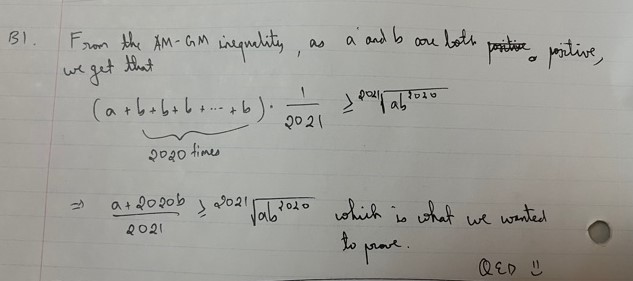 B1. From the AM-GM inequality, as a and b are both positive,
we get that
(a + b + b + b + ... + b) · 1/2021 ≥ ²⁰²¹√(ab²⁰²⁰)
2020 times
⇒ (a + 2020b)/2021 ≥ ²⁰²¹√(ab²⁰²⁰) which is what we wanted
to prove.
QED !!